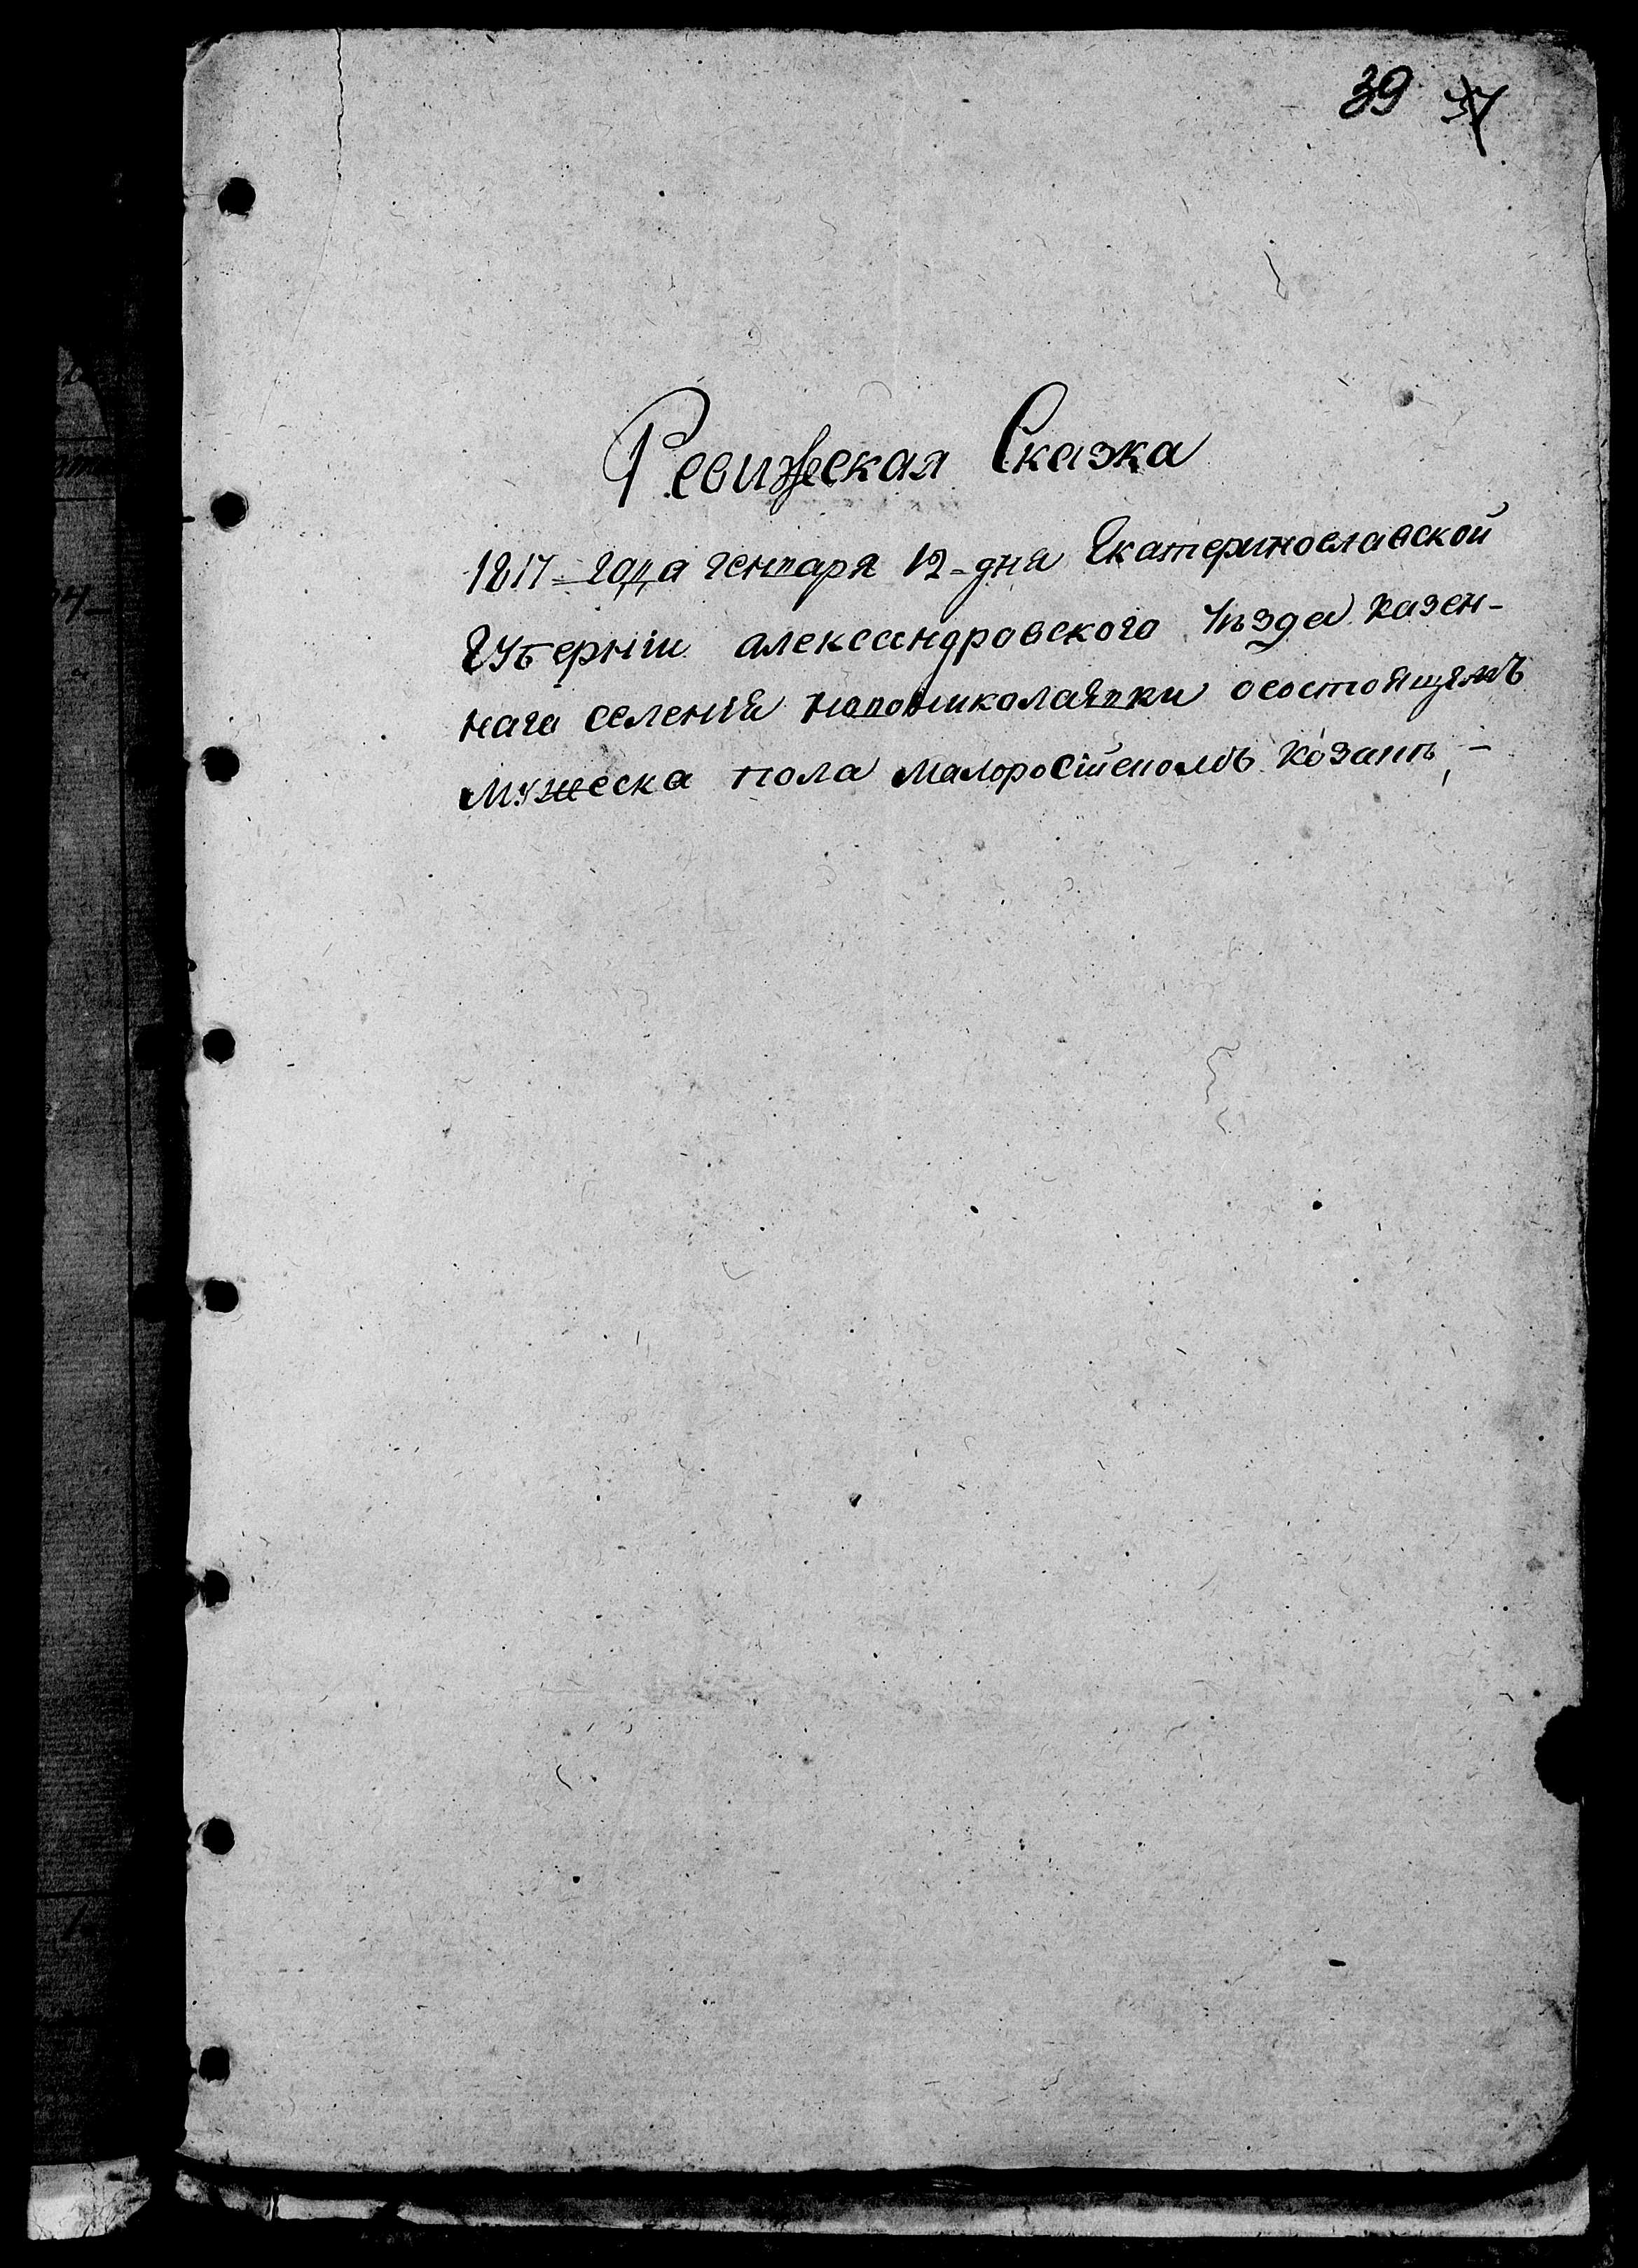 39 37
Ревижская Сказка
1817 = года генваря 12 = дня Екатеринославской
Губерніи александровского уѣзда казен-
наго селенія новониколаевки осостоящемъ
мужеска пола малоросійскомъ козакѣ, –